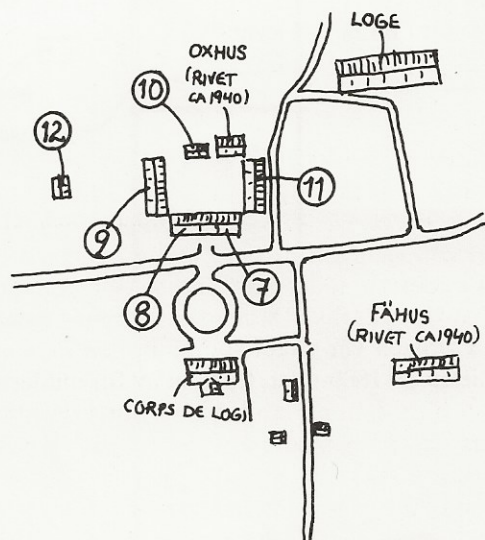 LOGE
OXHUS
(RIVET
CA 1940)
10
12
11
9
8
7
FÄHUS
(RIVET CA 1940)
CORPS DE LOGI